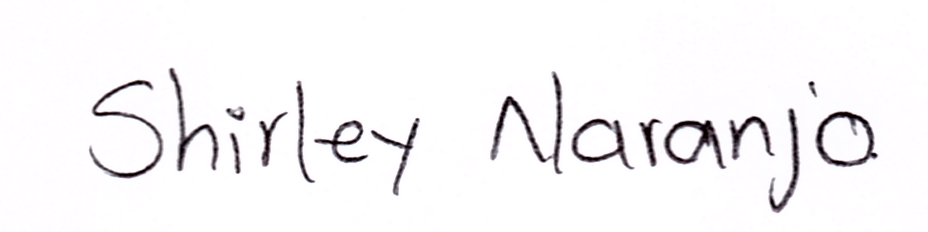 Shirley Naranjo